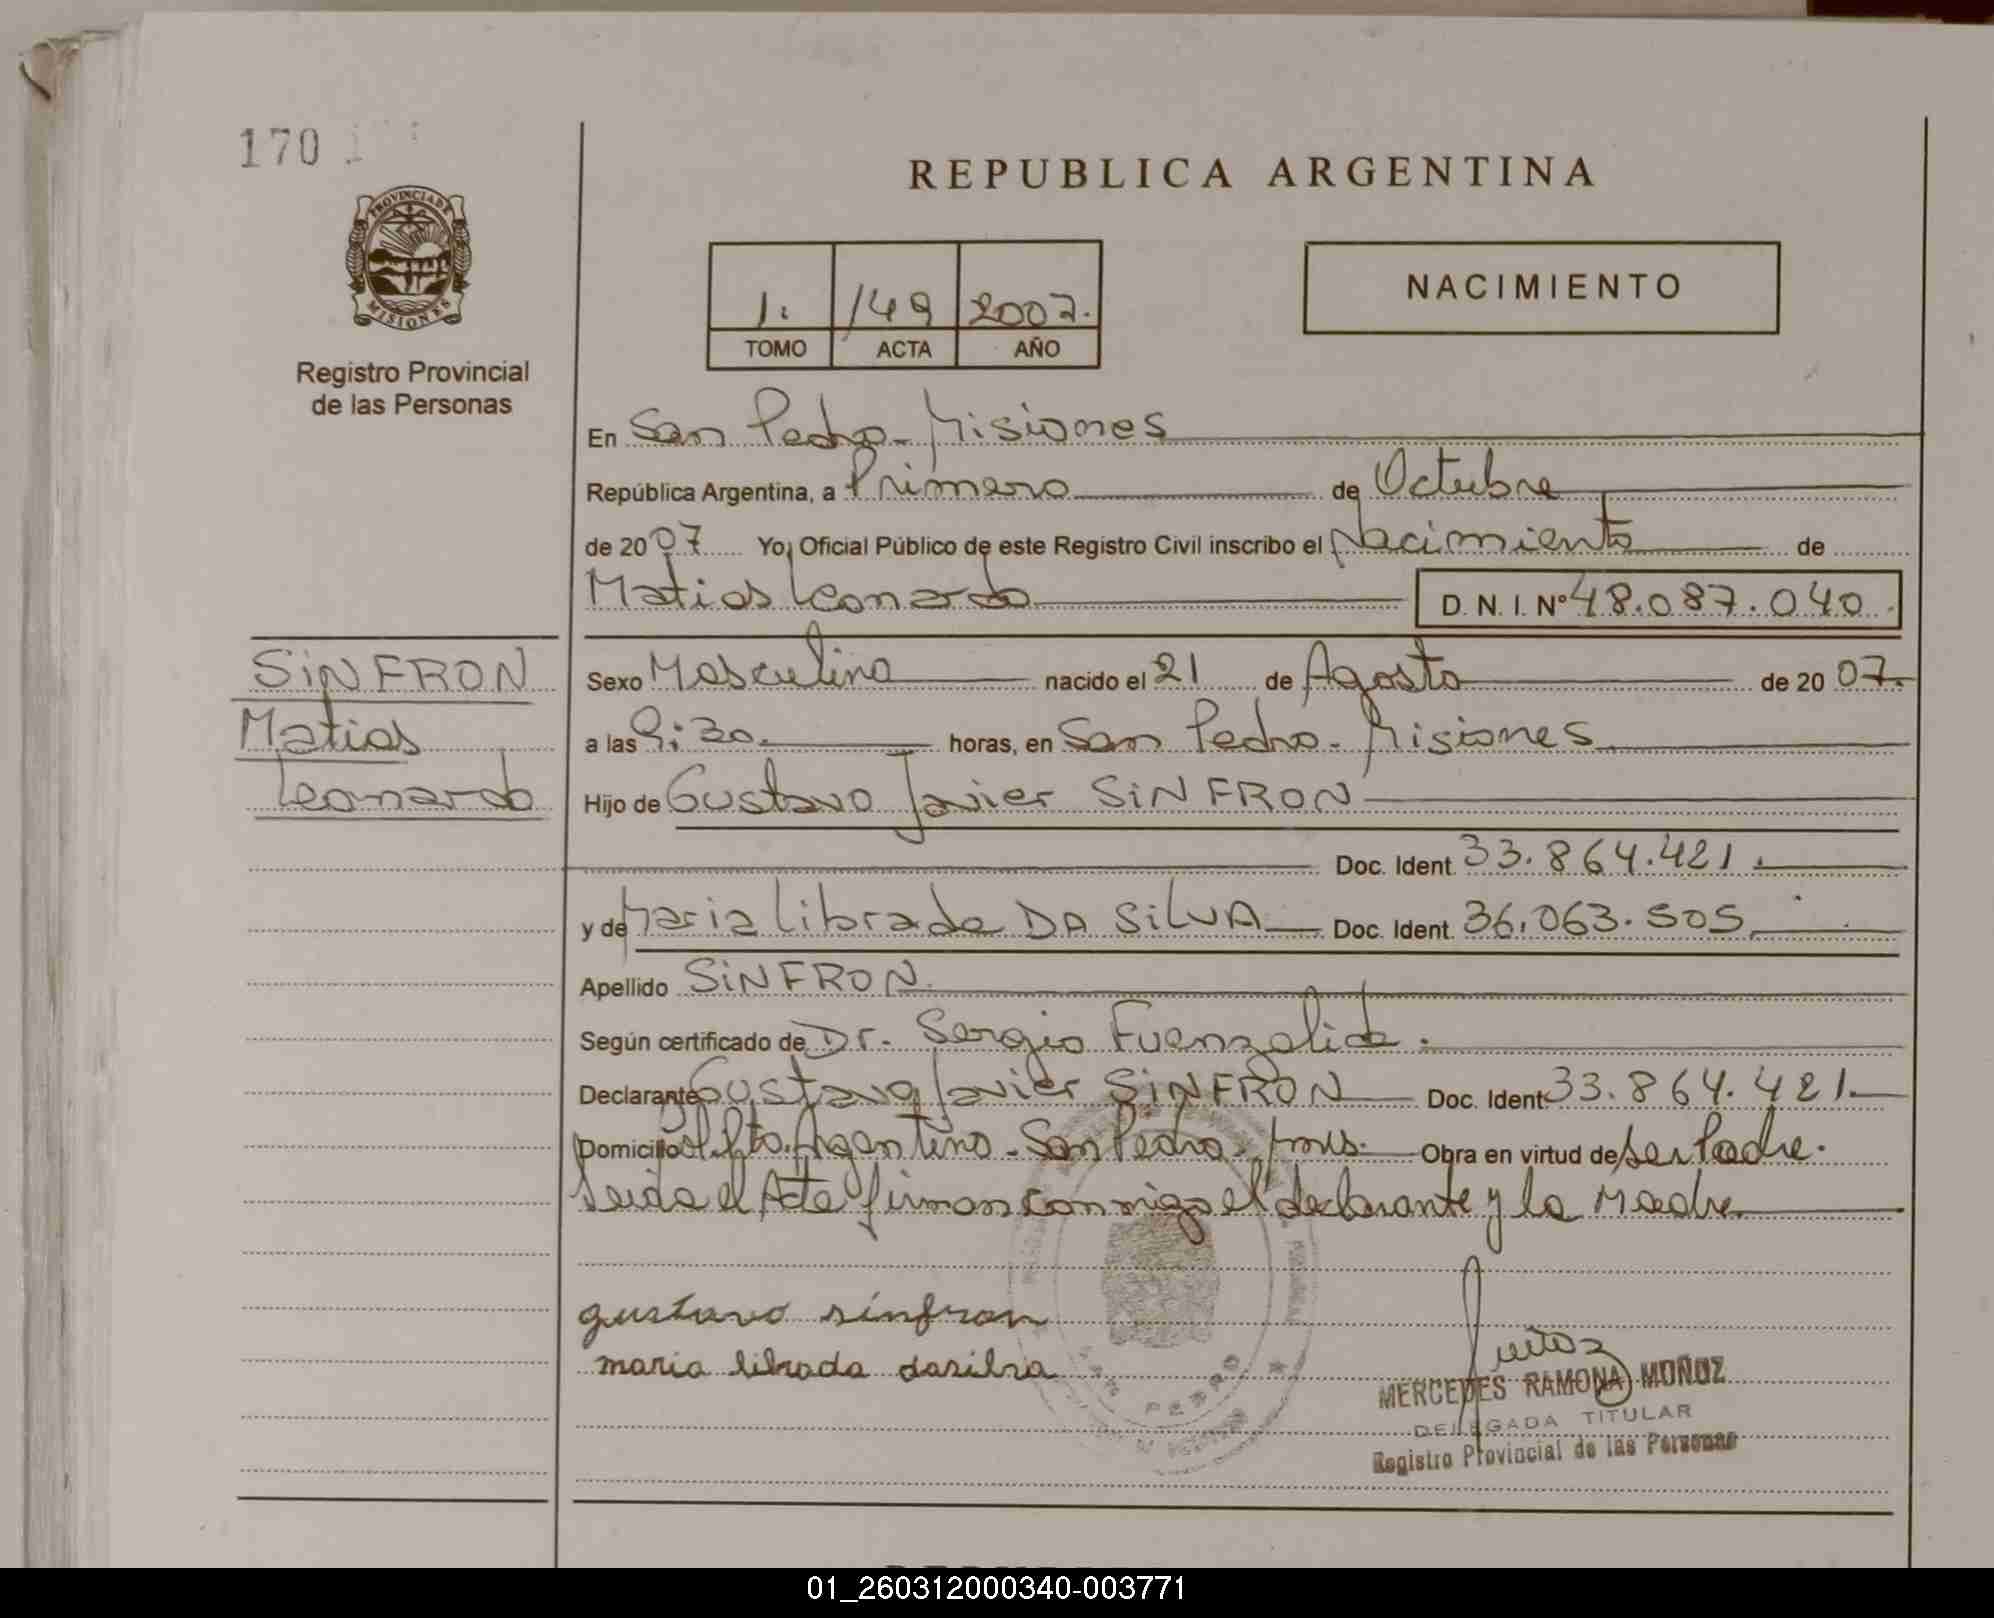 170
REPUBLICA ARGENTINA
PROVINCIA DE
MISIONES
Registro Provincial
de las Personas
1. 149 2007.
TOMO ACTA AÑO
NACIMIENTO
En San Pedro - Misiones
República Argentina, a Primero de Octubre
de 2007 Yo, Oficial Público de este Registro Civil inscribo el Nacimiento de
Matias Leonardo D. N. I. Nº 48.087.040.
SiNFRON
Matias
Leonardo
Sexo Masculino nacido el 21 de Agosto de 2007.
a las 9:30. horas, en San Pedro - Misiones
Hijo de Gustavo Javier SiNFRON
Doc. Ident. 33.864.421.
y de Maria Librada DA SiLVA Doc. Ident. 36.063.505.
Apellido SiNFRON.
Según certificado de Dr. Sergio Fuenzalida.
Declarante Gustavo Javier SiNFRON Doc. Ident. 33.864.421.
Domicilio Pto. Argentino - San Pedro - Mns. Obra en virtud de ser Padre.
Leida el Acta firman conmigo el declarante y la Madre
gustavo sinfron
maria librada dasilva
MERCEDES RAMONA MUÑOZ
DELEGADA TITULAR
Registro Provincial de las Personas
SAN PEDRO
01_260312000340-003771